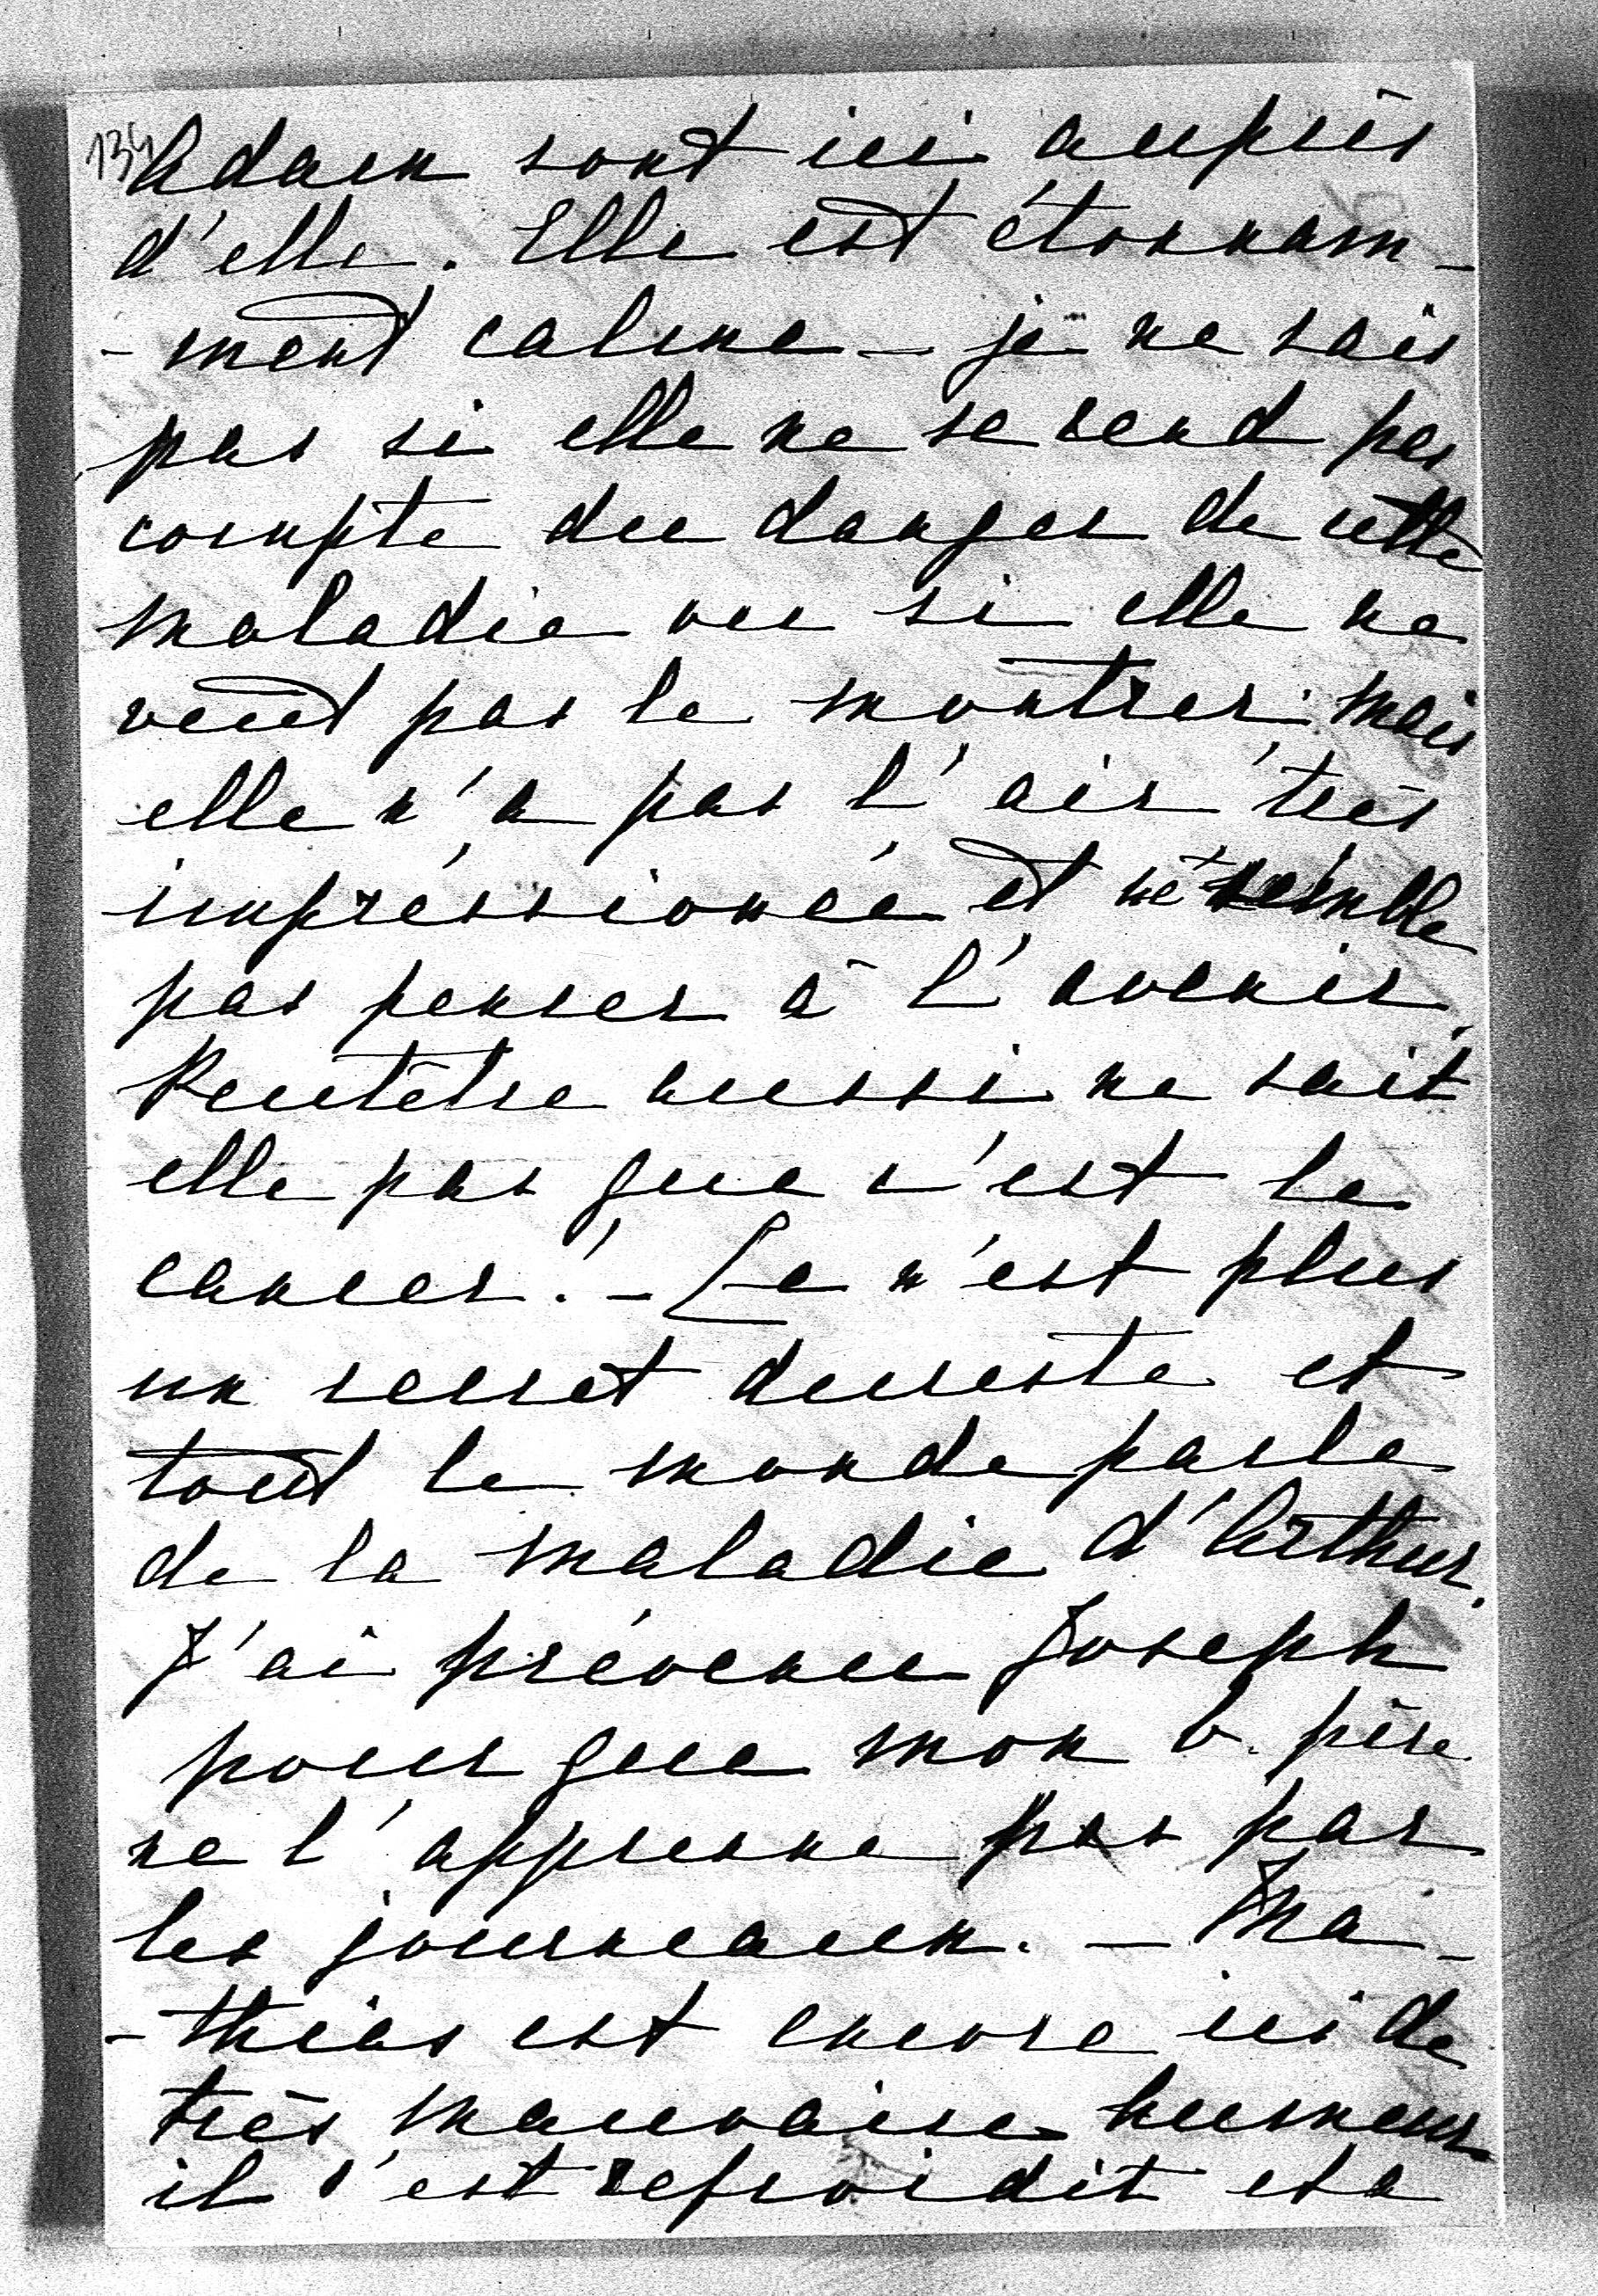 134
Adam sont ici auprès
d'elle. Elle est étonnam-
-ment calme — je ne sais
pas si elle ne se rend pas
compte du danger de cette
maladie ou si elle ne
veut pas le montrer mais
elle n'a pas l'air très
impréssionée et ne semble
pas penser à l'avenir.
Peutêtre aussi ne sait
elle pas que c'est le
cancer! — Ce n'est plus
un secret dureste et
tout le monde parle
de la maladie d'Arthur.
J'ai prévenu Joseph
pour que mon b. père
ne l'apprenne pas par
les journeaux. — Ma-
-thias est encore ici de
très mauvaise humeur
il s'est refroidit et a